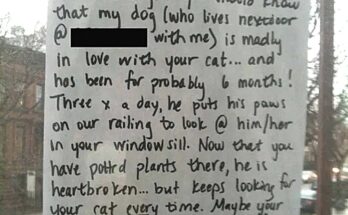 that my dog (who lives nextdoor
@ with me) is madly
in love with your cat... and
has been for probably 6 months!
Three x a day, he puts his paws
on our railing to look @ him/her
in your windowsill. Now that you
have pottrd plants there, he is
heartbroken... but keeps looking for
your cat every time. Maybe your